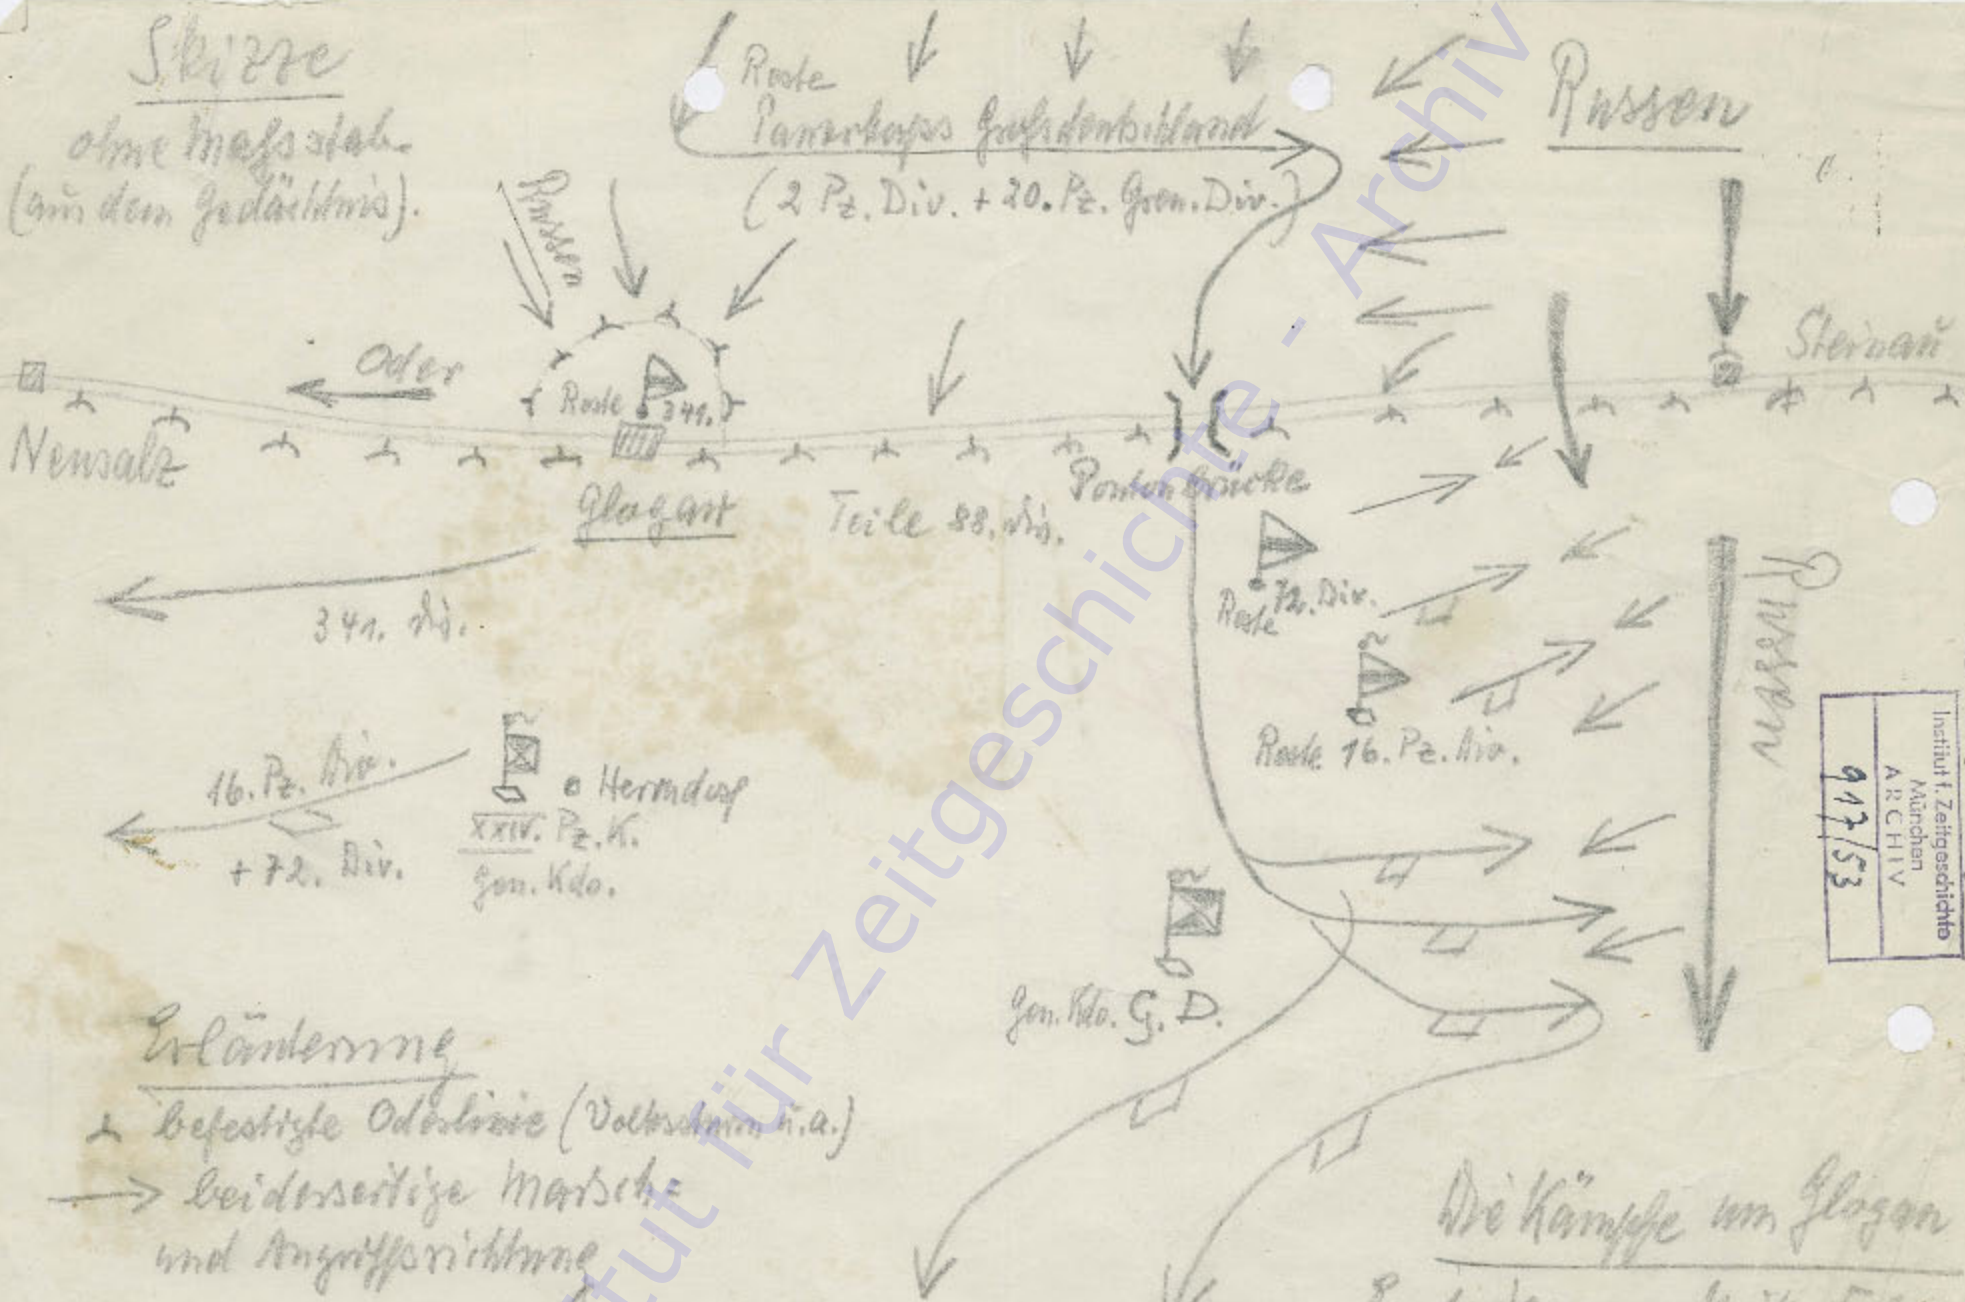 Skizze
ohne Maßstab.
(aus dem Gedächtnis).
Reste
Panzerkorps Großdeutschland
(2 Pz. Div. + 20. Pz. Gren. Div.)
Russen
Russen
Oder
Reste 341.
Steinau
Neusalz
Glogau
Teile 88. Div.
Pontonbrücke
341. Div.
Reste 72. Div.
Reste 16. Pz. Div.
Russen
16. Pz. Div.
+ 72. Div.
Herrndorf
XXIV. Pz. K.
Gen. Kdo.
Gen. Kdo. G. D.
Institut f. Zeitgeschichte
München
ARCHIV
917/53
Erläuterung
befestigte Oderlinie (Volkssturm u.a.)
beiderseitige Marsch=
und Angriffsrichtung
Die Kämpfe um Glogau
Institut für Zeitgeschichte - Archiv